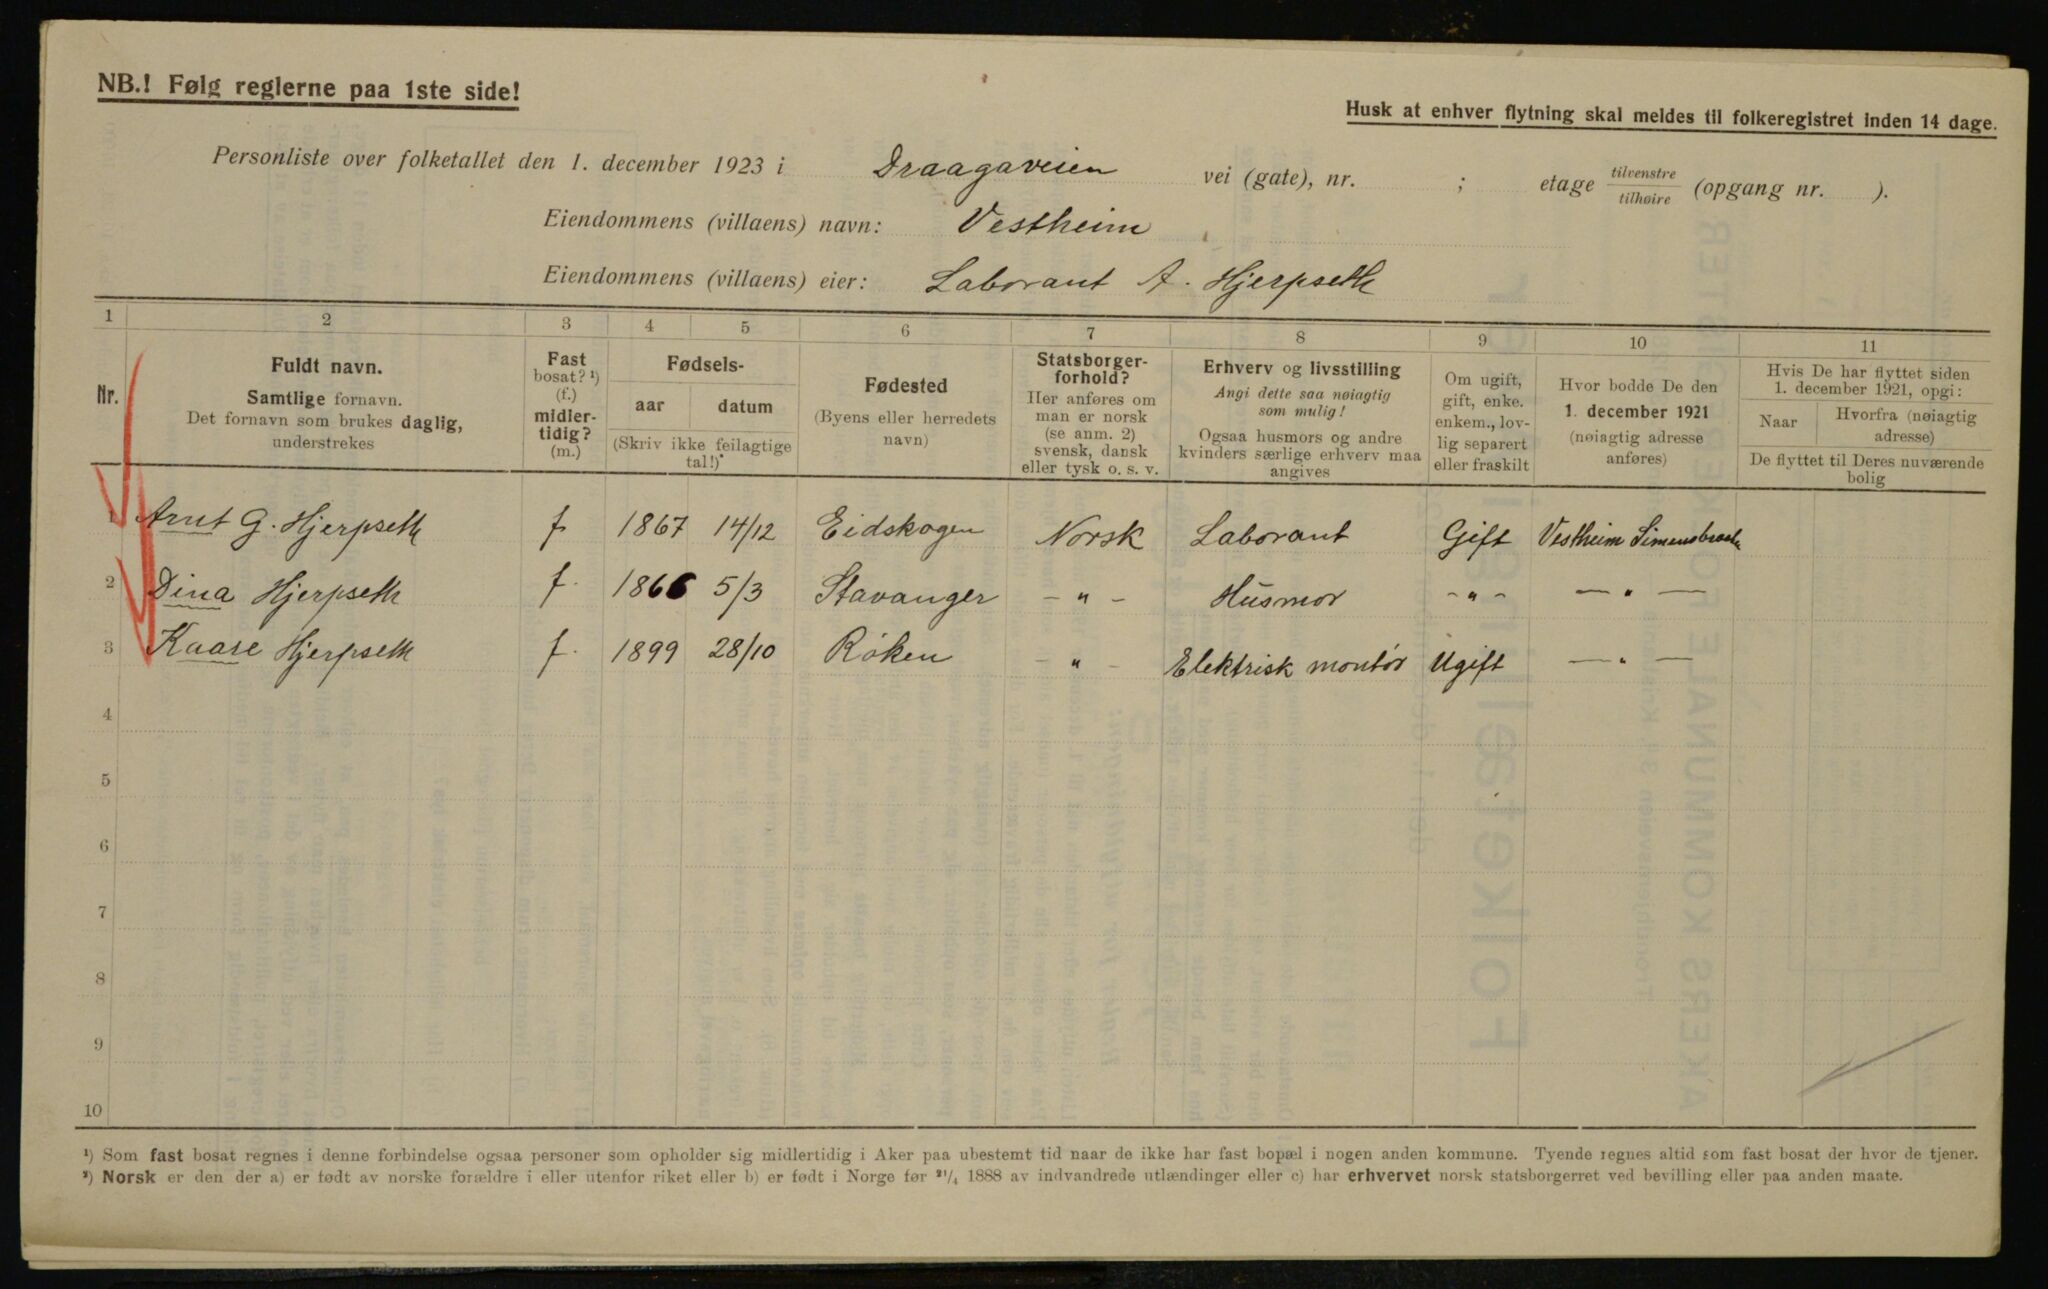 NB.! Følg reglerne paa 1ste side!
Husk at enhver flytning skal meldes til folkeregistret inden 14 dage.
Personliste over folketallet den 1. december 1923 i Draagaveien vei (gate), nr. ; etage tilvenstre/tilhøire (opgang nr. ).
Eiendommens (villaens) navn: Vestheim
Eiendommens (villaens) eier: Laborant A. Hjerpseth
1 2 3 4 5 6 7 8 9 10 11
Nr.
Fuldt navn.
Samtlige fornavn.
Det fornavn som brukes daglig,
understrekes
Fast
bosat? ¹)
(f.)
midler-
tidig?
(m.)
Fødsels-
aar datum
(Skriv ikke feilagtige
tal!)
Fødested
(Byens eller herredets
navn)
Statsborger-
forhold?
Her anføres om
man er norsk
(se anm. 2)
svensk, dansk
eller tysk o. s. v.
Erhverv og livsstilling
Angi dette saa nøiagtig
som mulig!
Ogsaa husmors og andre
kvinders særlige erhverv maa
angives
Om ugift,
gift, enke.
enkem., lov-
lig separert
eller fraskilt
Hvor bodde De den
1. december 1921
(nøiagtig adresse
anføres)
Hvis De har flyttet siden
1. december 1921, opgi:
Naar Hvorfra (nøiagtig
adresse)
De flyttet til Deres nuværende
bolig
1 Arnt G. Hjerpseth f. 1867 14/12 Eidskogen Norsk Laborant Gift Vestheim
2 Dina Hjerpseth f. 1866 5/3 Stavanger — " — Husmor — " — — " —
3 Kaare Hjerpseth f. 1899 28/10 Røken — " — Elektrisk montør Ugift — " —
4
5
6
7
8
9
10
¹) Som fast bosat regnes i denne forbindelse ogsaa personer som opholder sig midlertidig i Aker paa ubestemt tid naar de ikke har fast bopæl i nogen anden kommune. Tyende regnes altid som fast bosat der hvor de tjener.
²) Norsk er den der a) er født av norske forældre i eller utenfor riket eller b) er født i Norge før ²¹/₄ 1888 av indvandrede utlændinger eller c) har erhvervet norsk statsborgerret ved bevilling eller paa anden maate.